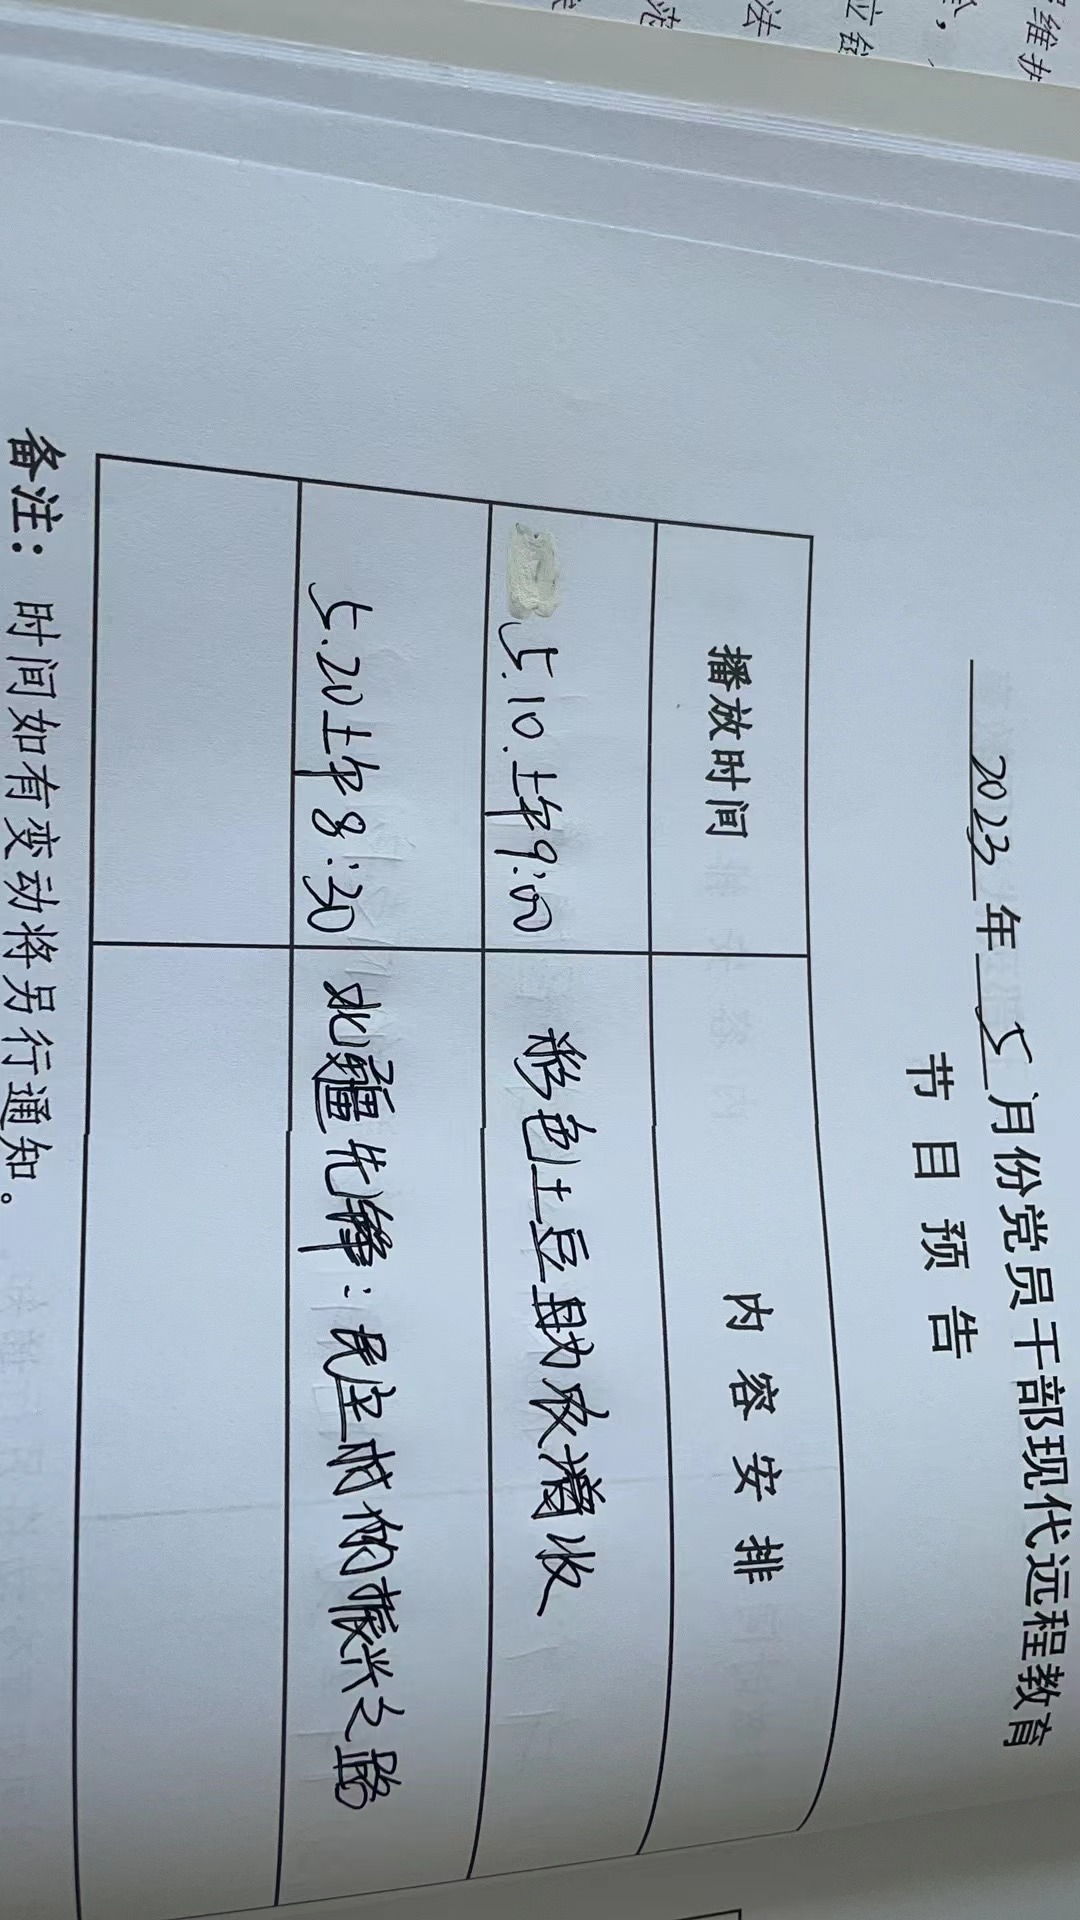 2023年5月份党员干部现代远程教育
节目预告
播放时间 内容安排
5.10.上午9:00 彩色土豆助农增收
5.20上午8:30 北疆先锋:民主村的振兴之路
备注：时间如有变动将另行通知。